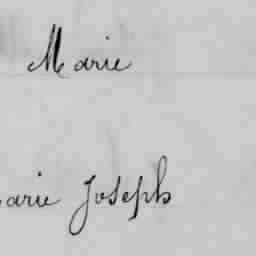 Marie
arie Joseph